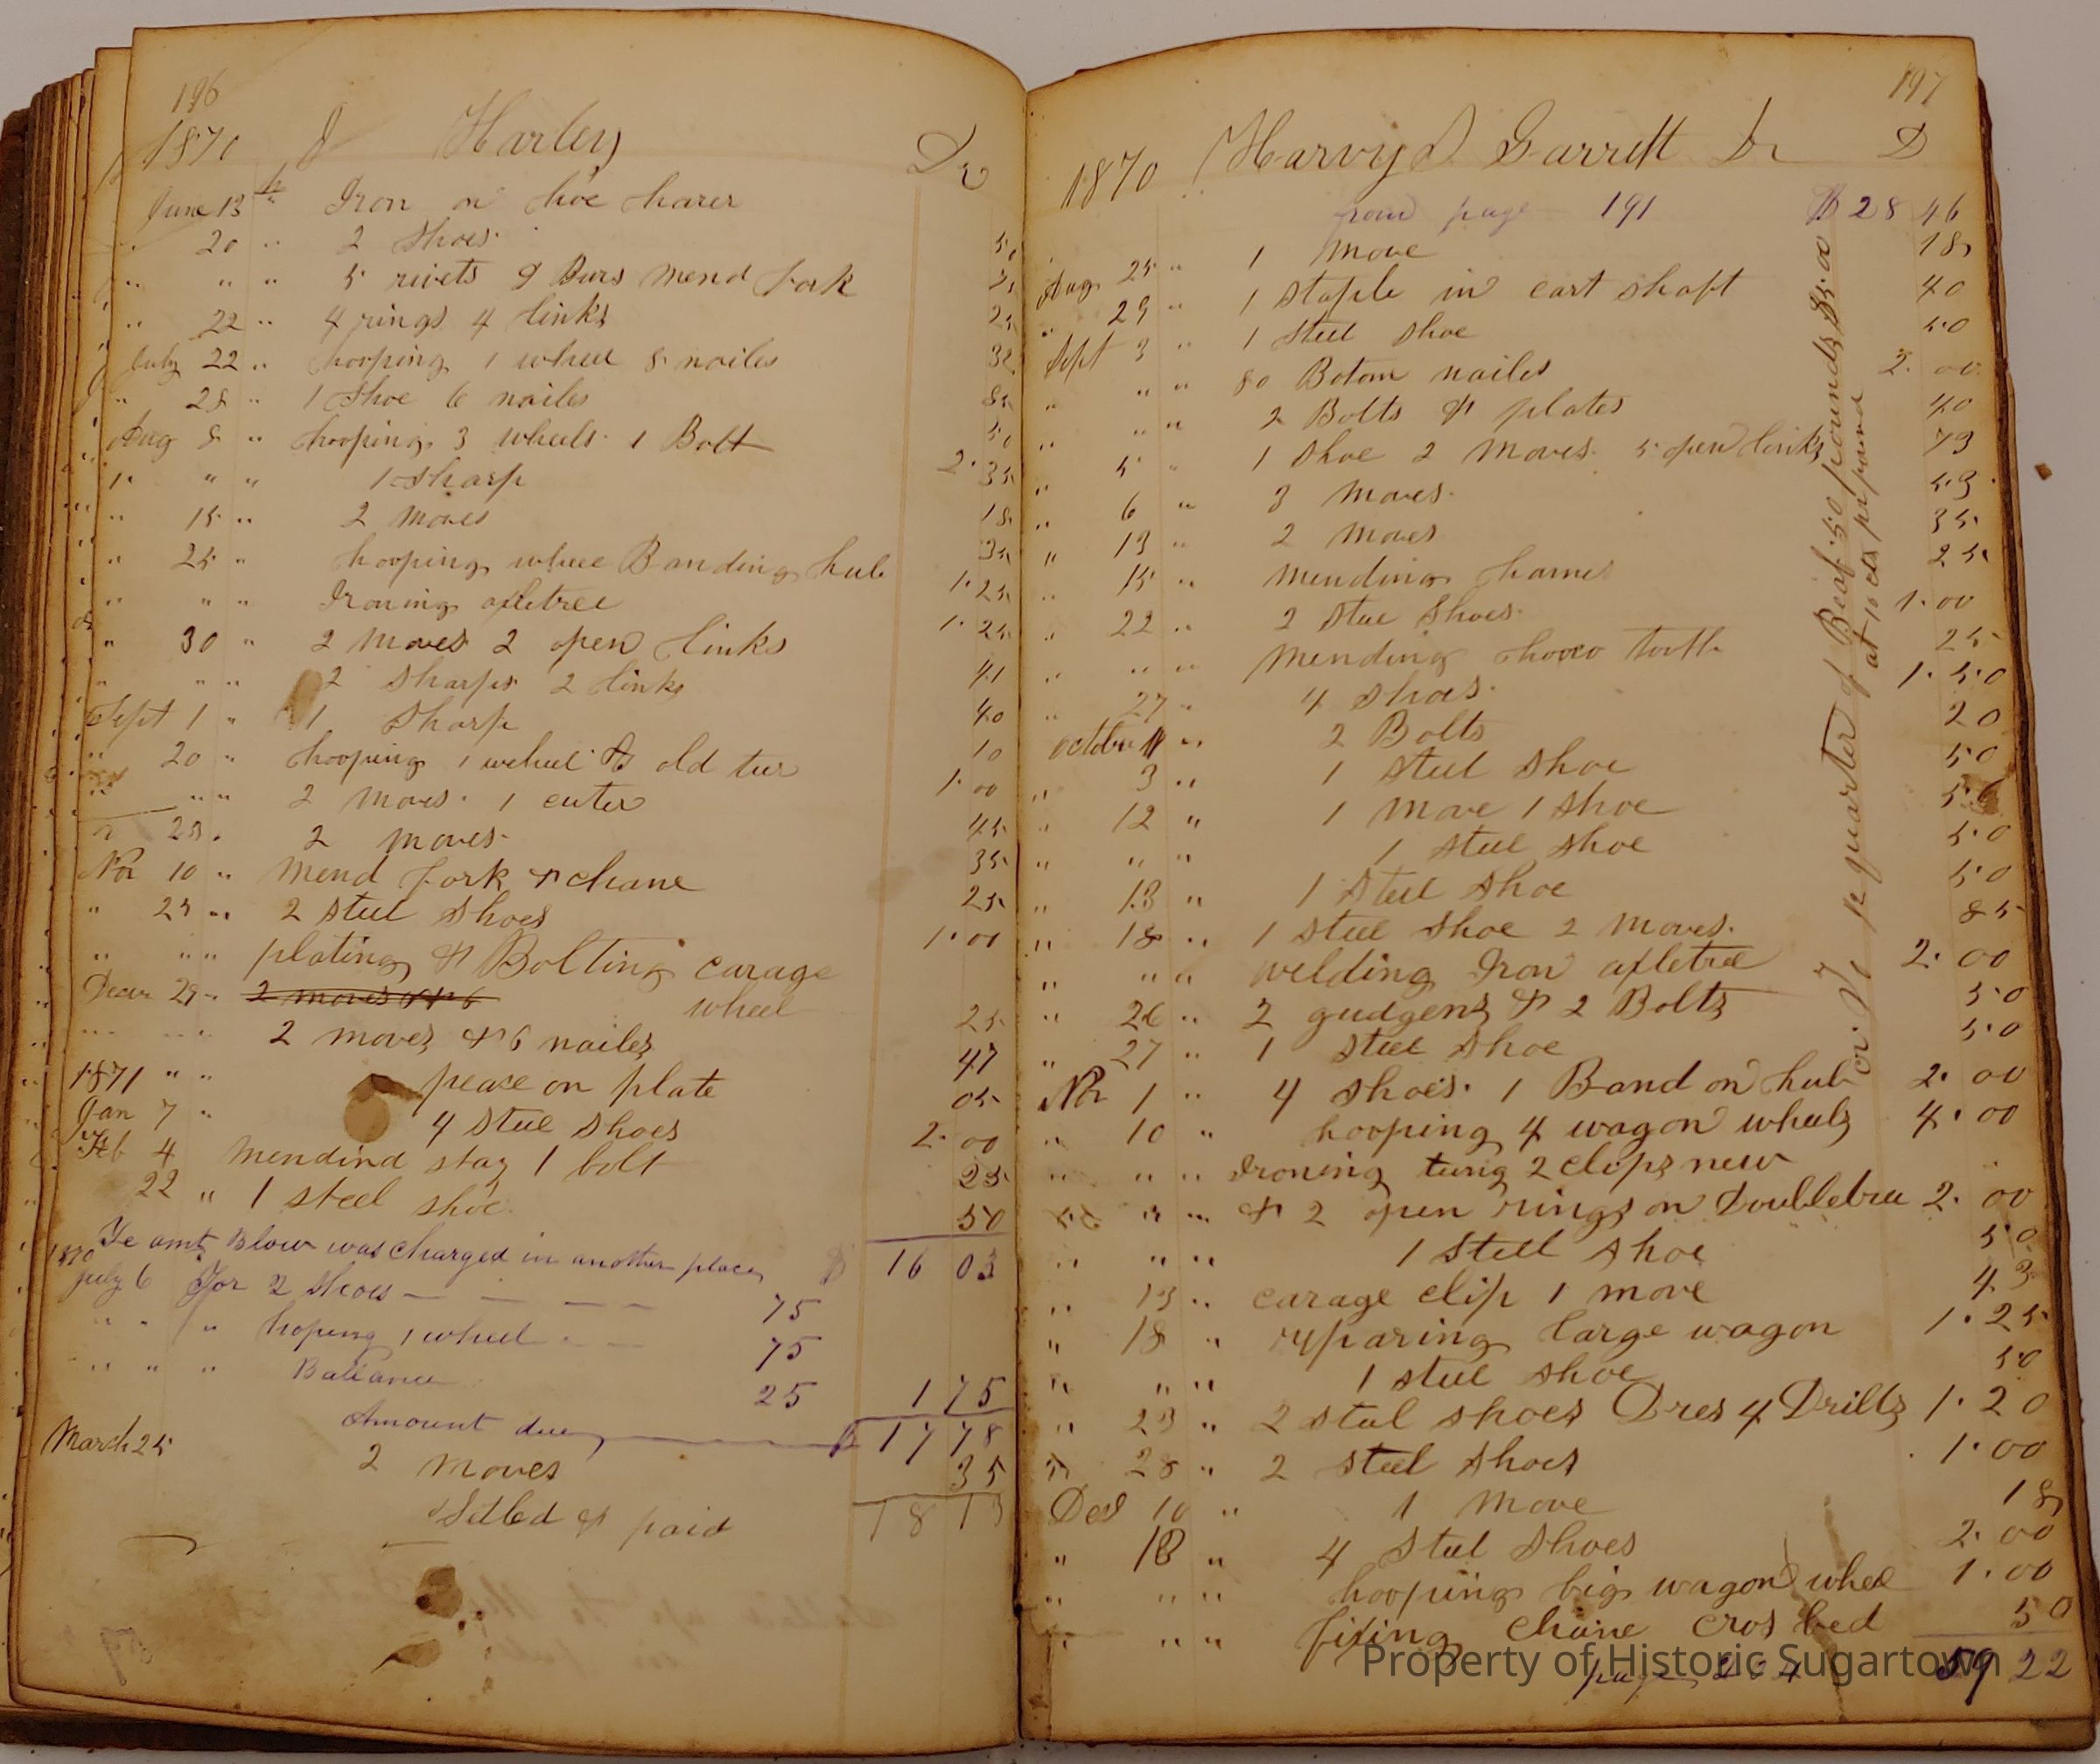 196
1870 J Harley Dr
June 13th Iron on hoe
" 20 " 2 Shoes 50
" " " 5 rivets & Burs mend fork
" 22 " 4 rings 4 links 25
July 22 " hooping 1 wheel 8 nailes
" 28 " 1 Shoe 6 nailes
Aug 8 " hooping 3 wheels 1 Bolt 2.35
" " " 1 sharp
" 15 " 2 moves 35
" 25 " hooping wheel Banding hub 1.25
" " " Ironing axletree 1.25
" 30 " 2 moves 2 open links 41
" " " 2 sharps 2 links 40
Sept 1 " 1 Sharp 10
" 20 " hooping 1 wheel old 1.00
" " " 2 moves 1 cuter 45
" 29 2 moves 35
Nov 10 " mend fork & chane 25
" 25 " 2 steel shoes 1.00
" " " plating & Bolting carage
Decm 29 " 2 moves & 6 wheel 25
" " 2 moves & 6 nailes 47
1871 " " pease on plate 05
Jan 7 " 4 stee shoes 2.00
Feb 4 mendind stay 1 bolt 25
22 " 1 steel shoe 50
Te amt Blow was Charged in another place $ 16 03
1870
July 6 For 2 Shoes 75
" " " hoping 1 wheel 75
" " " Ballance 25 1 75
Amount due $ 17 78
March 25 2 moves 35
Setled & paid 18 13
197
1870 Harvy D. Garrett Dr D
from page 191 $28 46
Aug 25 " 1 move 18
" 29 " 1 staple in cart shaft 40
Sept 3 " 1 steel shoe 50
" " " 80 Botom nailes 2.00
" " " 2 Bolts & plates 40
" 5 " 1 Shoe 2 moves 5 open links 73
" 6 " 3 moves 53
" 13 " 2 moves 35
" 15 " mending hames 25
" 22 " 2 stee Shoes 1.00
" " " mending tooth 25
" 27 " 4 shoes 1.50
October 1 " 2 Bolts 20
" 3 " 1 steel shoe 50
" 12 " 1 move 1 shoe
" " " 1 steel shoe 50
" 13 " 1 steel shoe 50
" 18 " 1 steel shoe 2 moves 85
" " " welding Iron axletree 2.00
" 26 " 2 gudgens & 2 Bolts 50
" 27 " 1 steel shoe 50
Nov 1 " 4 shoes 1 Band on hub 2.00
" 10 " hooping 4 wagon wheels 4.00
" " " Ironing tung 2 clips new
" " " & 2 open rings on Doubletree 2.00
" " " 1 steel shoe 50
" 13 " carage clip 1 move 43
" 18 " reparing large wagon 1.25
" " " 1 steel shoe 50
" 23 " 2 steel shoes Dres 4 Drills 1.20
" 28 " 2 steel shoes 1.00
Dec 10 " 1 move 18
" 18 " 4 steel shoes 2.00
" " " hooping big wagon wheel 1.00
" " " fixing chane cros bed 50
page 204 59 22
quarter of Beaf 50 pounds $5.00
at 10 cts per pound
Property of Historic Sugartown